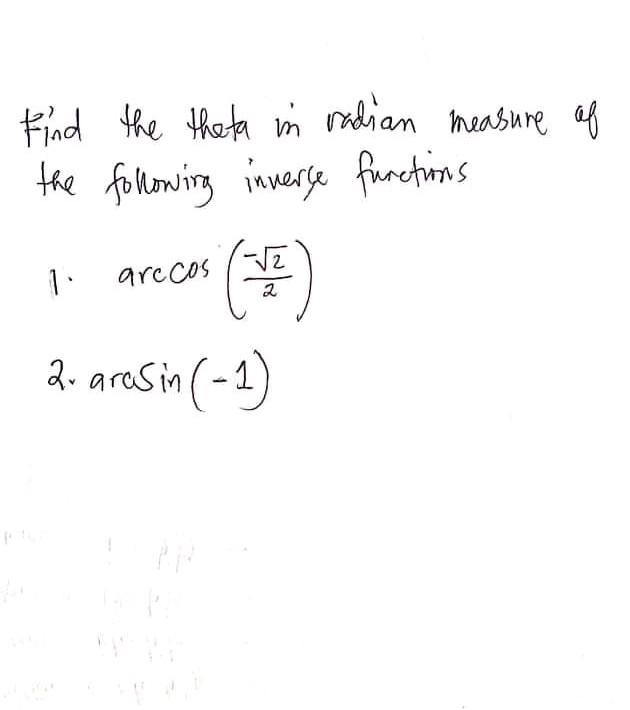 Find the theta in radian measure of
the following inverse functions
1. arccos (-√2/2)
2. arcsin (-1)